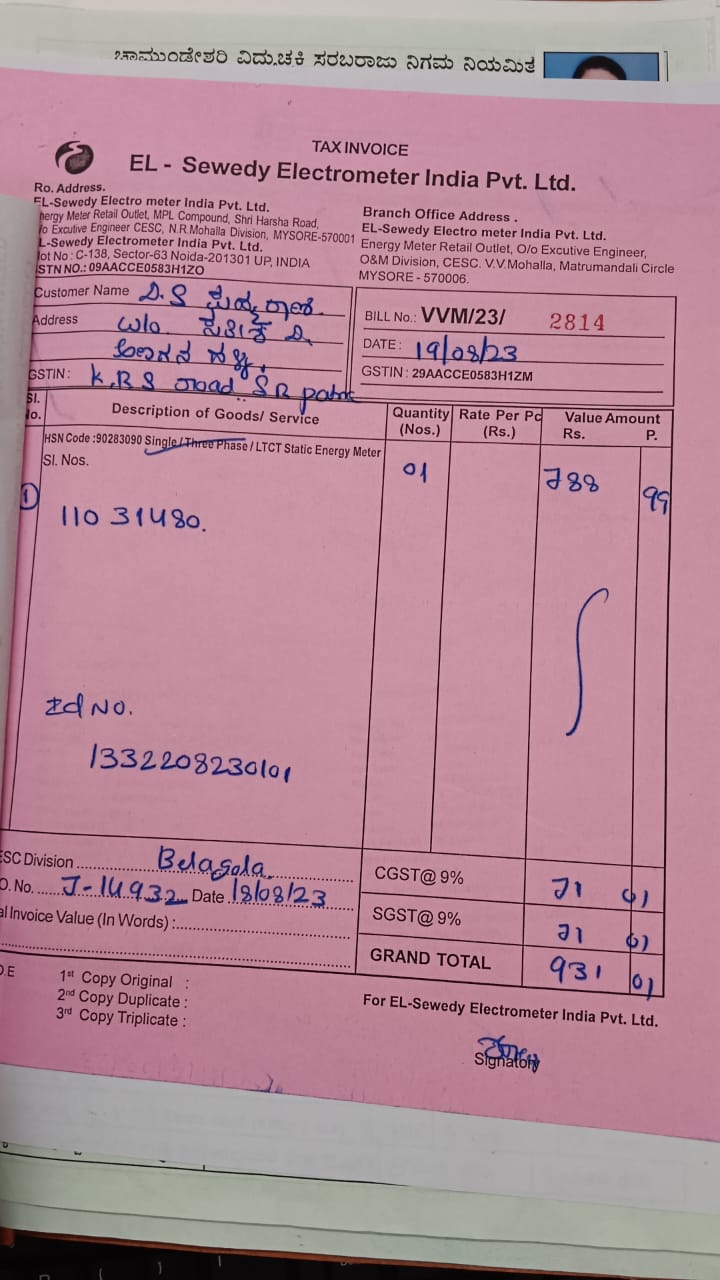 ಚಾಮುಂಡೇಶ್ವರಿ ವಿದ್ಯುಚ್ಛಕ್ತಿ ಸರಬರಾಜು ನಿಗಮ ನಿಯಮಿತ
TAX INVOICE
EL - Sewedy Electrometer India Pvt. Ltd.
Ro. Address.
EL-Sewedy Electro meter India Pvt. Ltd.
nergy Meter Retail Outlet, MPL Compound, Shri Harsha Road,
/o Excutive Engineer CESC, N.R.Mohalla Division, MYSORE-570001
L-Sewedy Electrometer India Pvt. Ltd.
lot No : C-138, Sector-63 Noida-201301 UP, INDIA
STN NO.: 09AACCE0583H1ZO
Branch Office Address .
EL-Sewedy Electro meter India Pvt. Ltd.
Energy Meter Retail Outlet, O/o Excutive Engineer,
O&M Division, CESC. V.V.Mohalla, Matrumandali Circle
MYSORE - 570006.
Customer Name D.S
Address W/o.
GSTIN : K.R.S road S R patna
BILL No.: VVM/23/ 2814
DATE : 19/08/23
GSTIN : 29AACCE0583H1ZM
Sl. No. Description of Goods/ Service Quantity (Nos.) Rate Per Pc (Rs.) Value Amount Rs. P.
HSN Code :90283090 Single / Three Phase / LTCT Static Energy Meter 01 788 99
Sl. Nos.
① 110 31480.
Id No.
1332208230101
ESC Division Belagola.
O. No. J-14932 Date 18/08/23
al Invoice Value (In Words) :
CGST@ 9% 71 01
SGST@ 9% 71 01
GRAND TOTAL 931 01
O.E
1st Copy Original :
2nd Copy Duplicate :
3rd Copy Triplicate :
For EL-Sewedy Electrometer India Pvt. Ltd.
Signatory